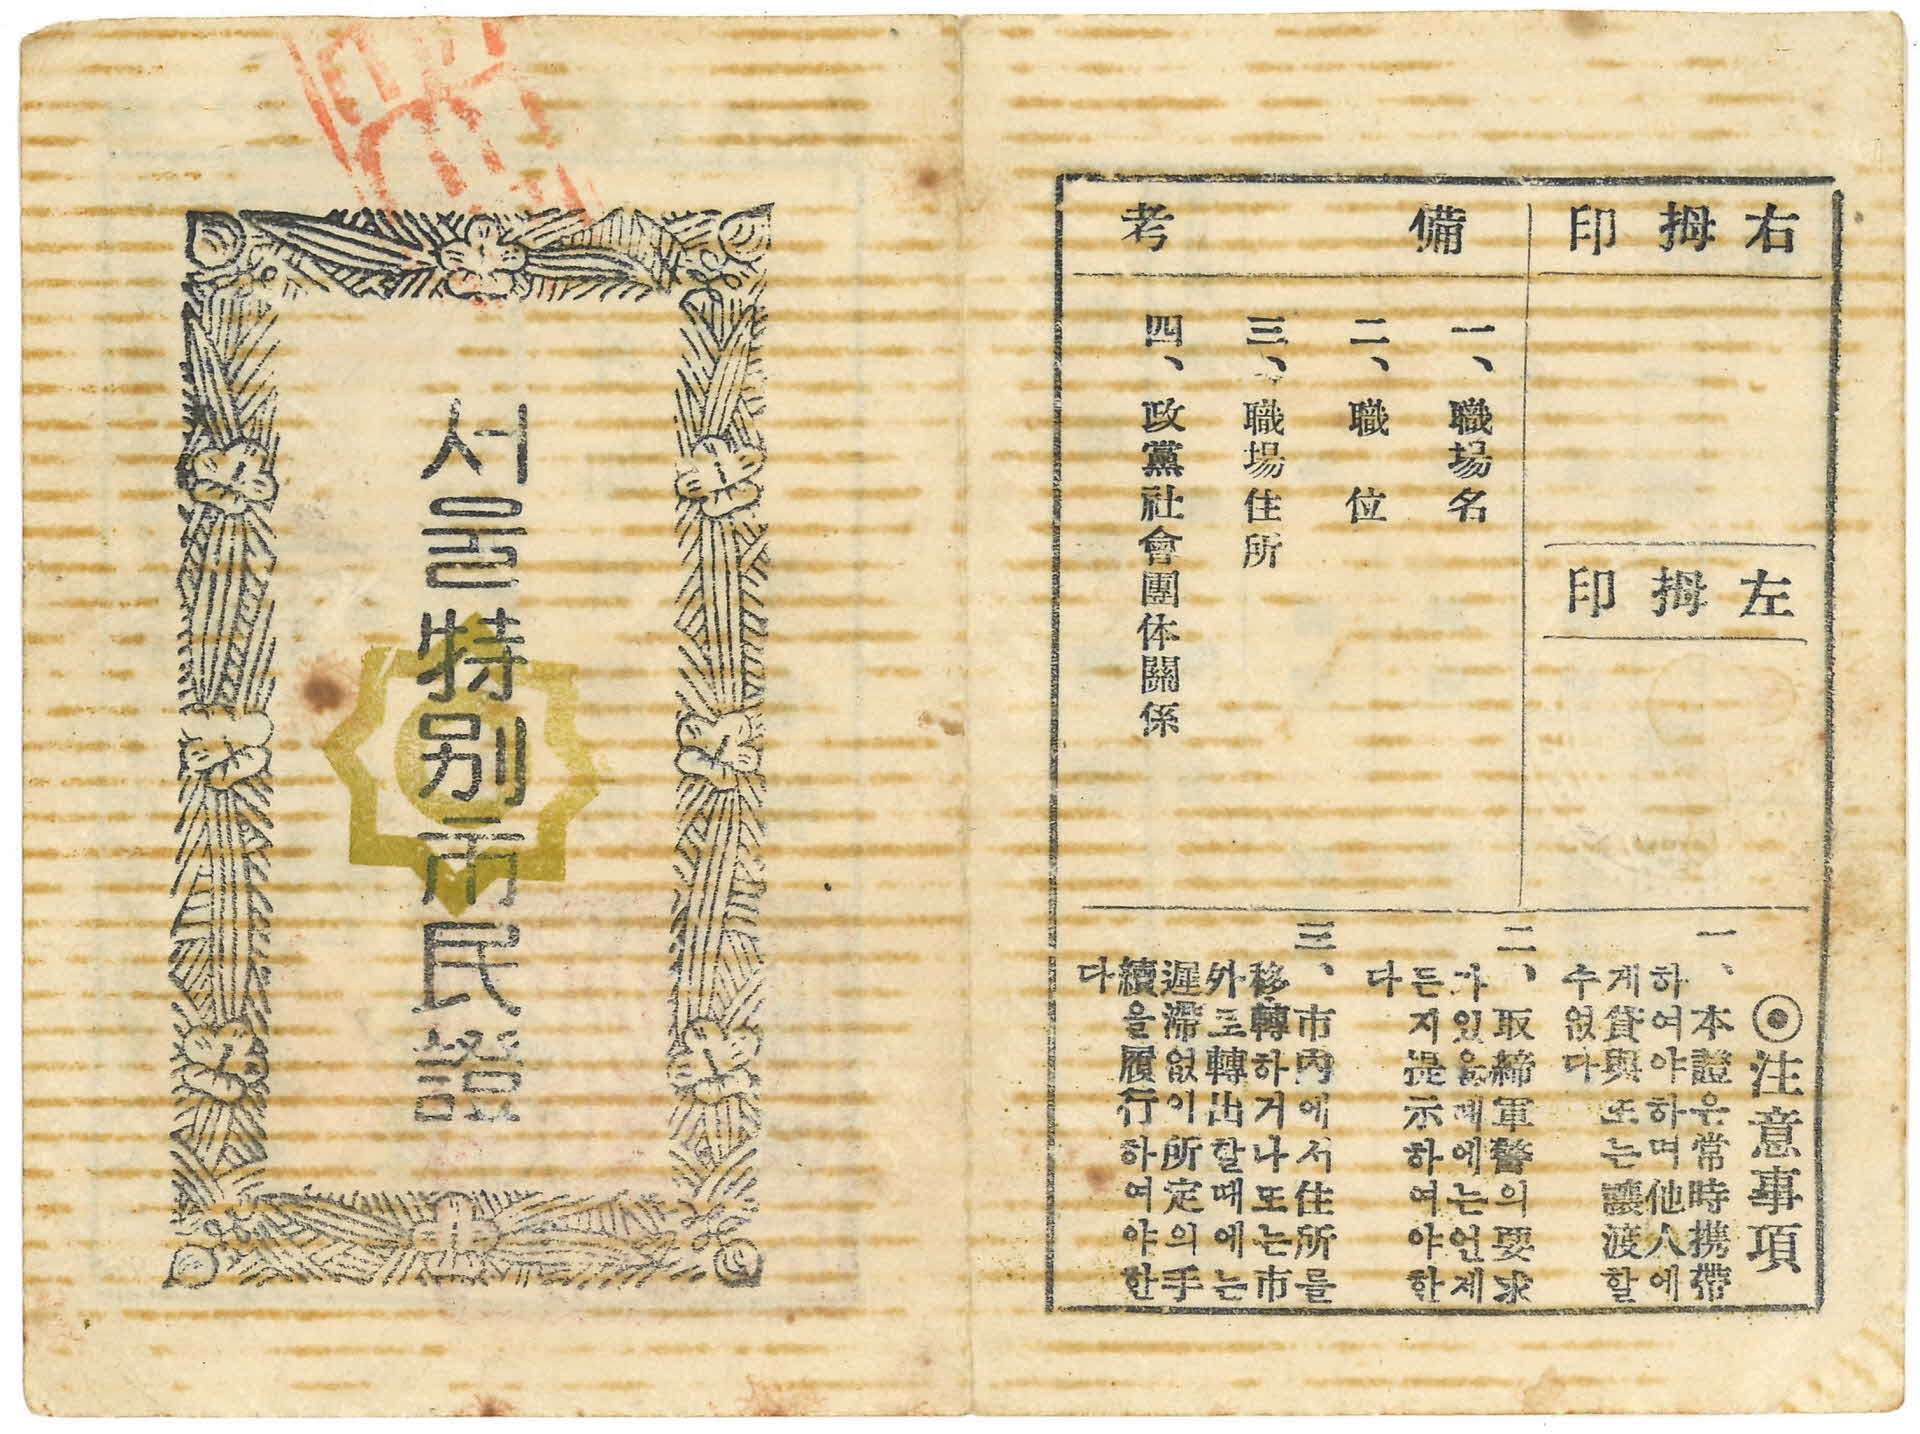 서울特別市民證
右拇印
左拇印
備考
一、職場名
二、職位
三、職場住所
四、政黨社會團体關係
◉注意事項
一、本證은常時携帶
하여야하며他人에
게貸與또는讓渡할
수없다
二、取締軍警의要求
가있을때에는언제
든지提示하여야한
다
三、市內에서住所를
移轉하거나또는市
外로轉出할때에는
遲滯없이所定의手
續을履行하여야한
다